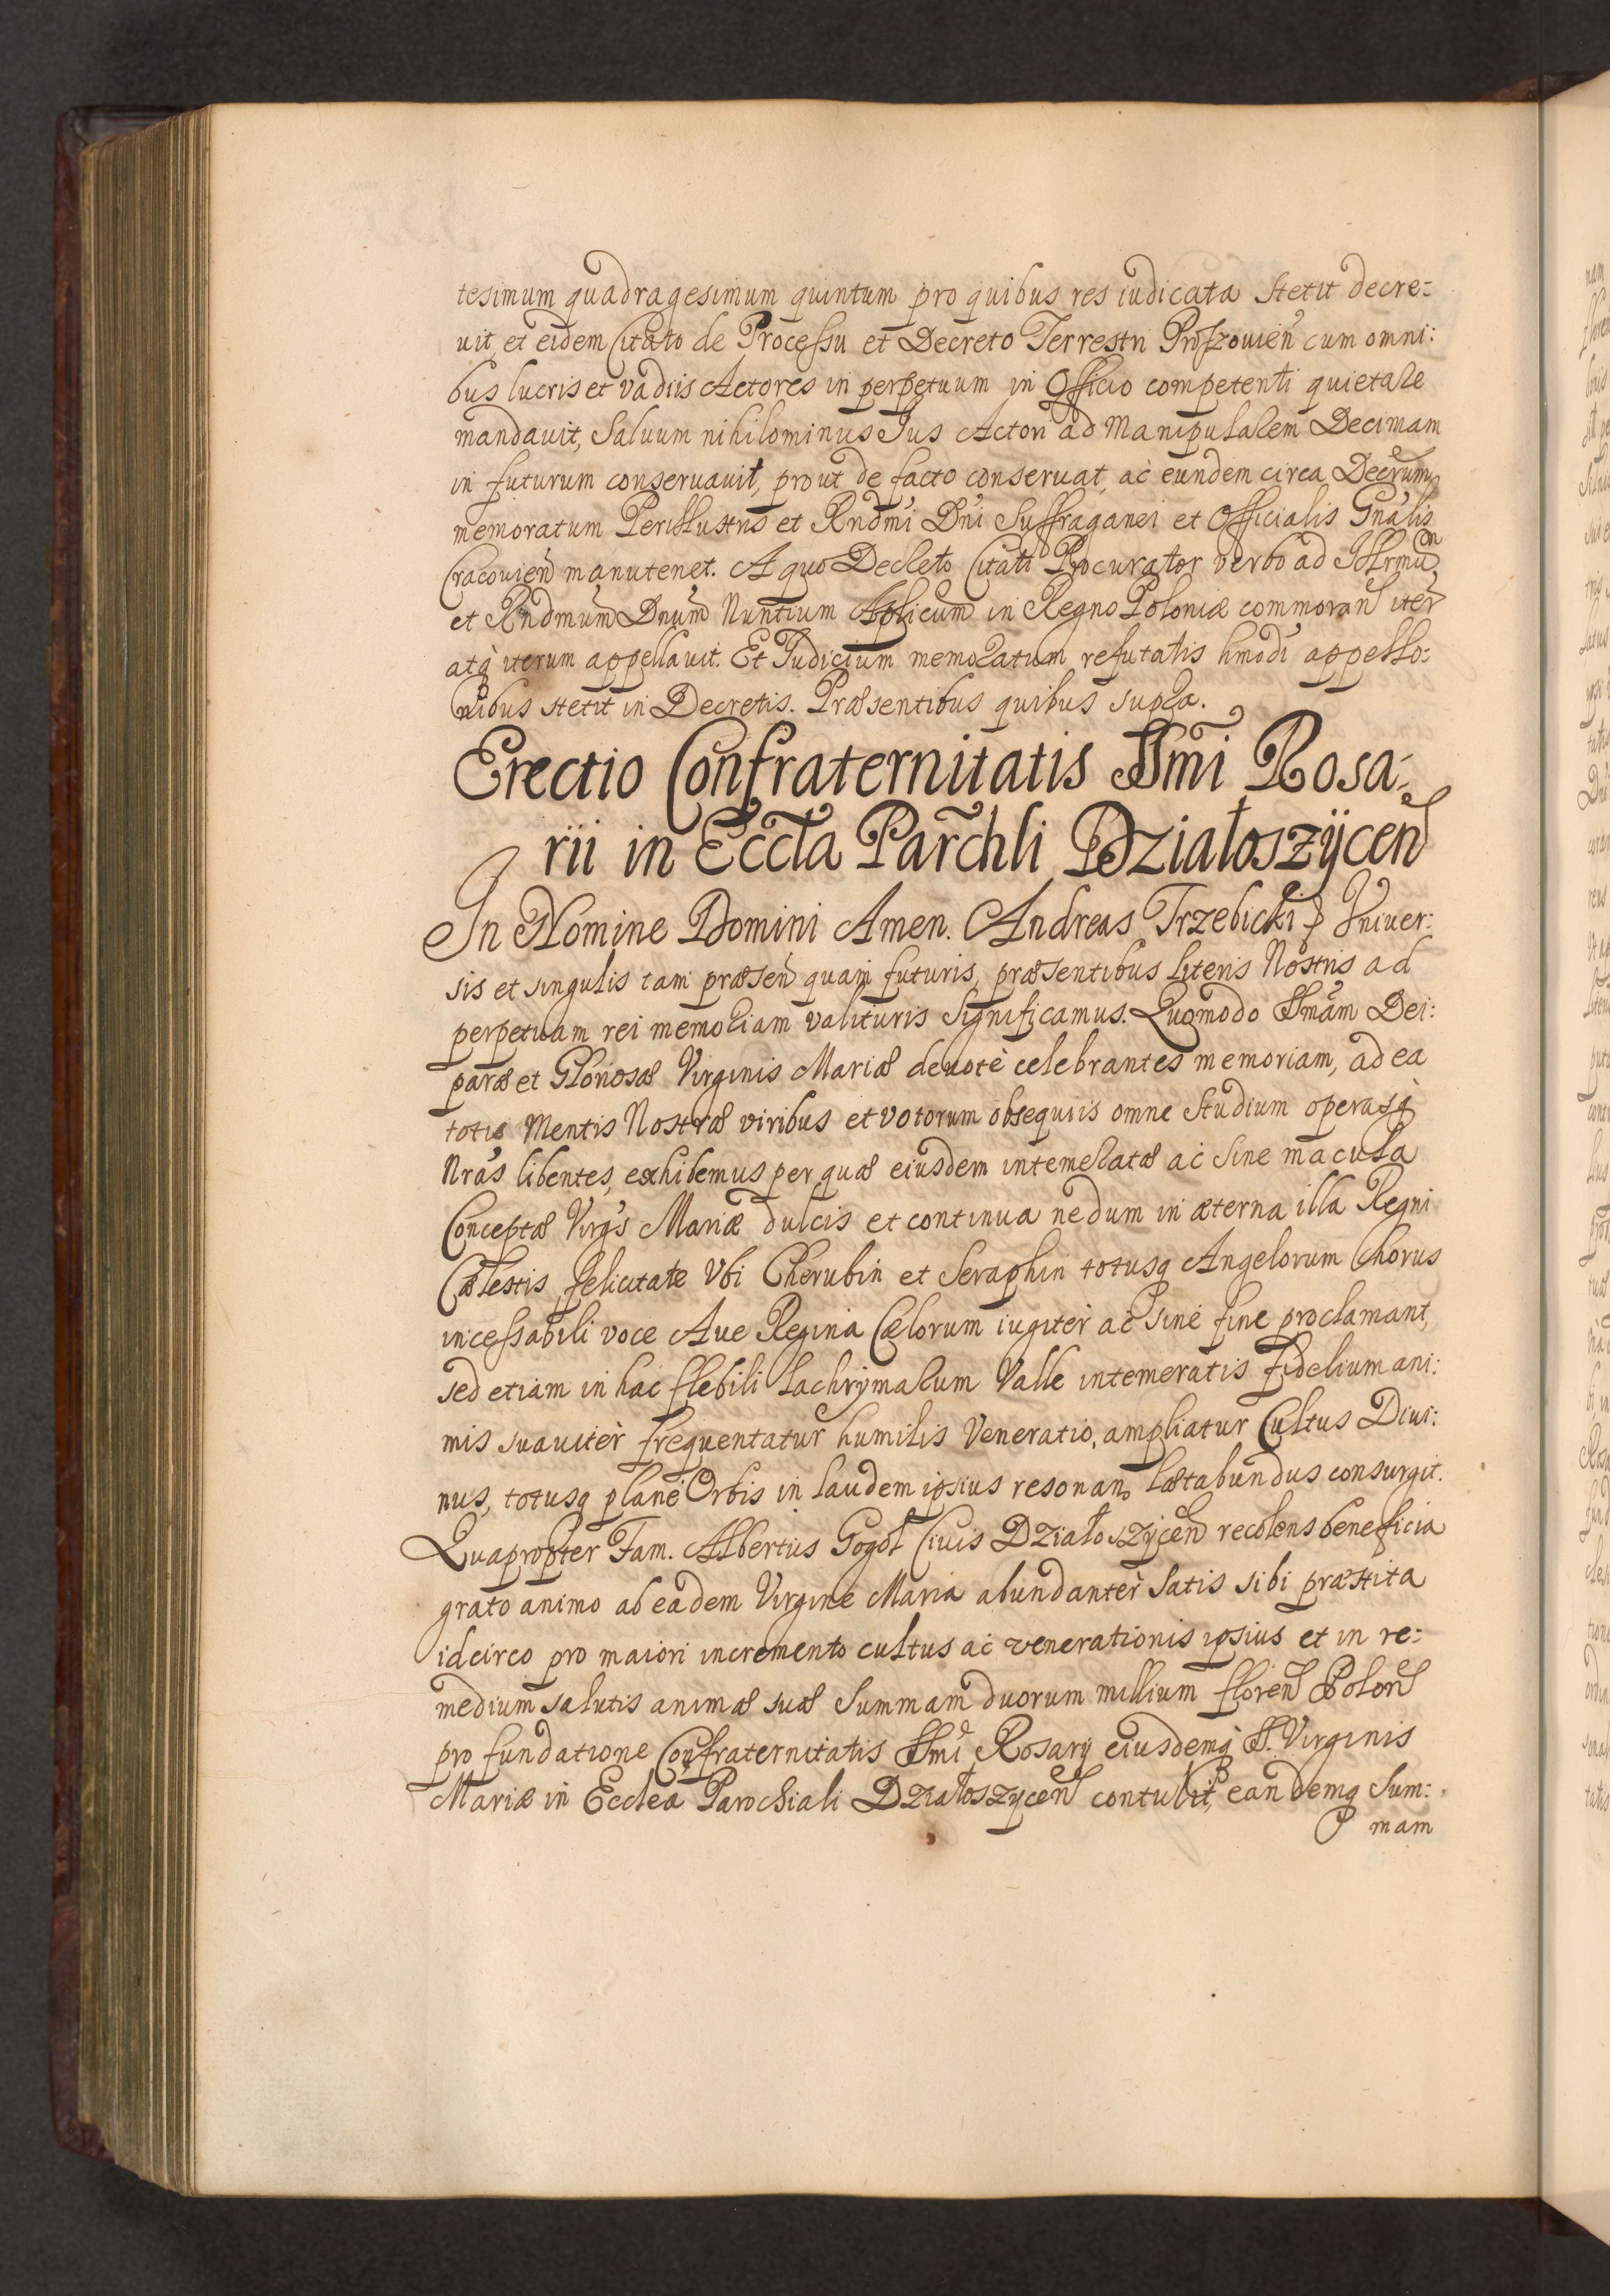 tesimum quadragesimum quintum pro quibus res iudicata stetit decre:
uit, et eidem Citato de Processu et Decreto Terrestri Proszouień cum omni:
bus lucris et vadiis Actores in perpetuum in Officio competenti quietare
mandauit, Saluum nihilominus Jus Actori ad Manipularem Decimam
in futurum conseruauit, prout de facto conseruat, ac eundem circa Decrum
memoratum Perillustris et Rndmi Dni Suffraganei et Officialis Gnalis
Cracouień manutenet. A quo Decreto Citati Procurator verbo ad Illrmu
et Rndmum Dnum Nuntium Aplicum in Regno Poloniæ commoran iter
atq iterum appellauit. Et Judicium memoratum refutatis hmodi appello:
nibus stetit in Decretis. Præsentibus quibus supra.
Erectio Confraternitatis SSmi Rosa:
rii in Eccła Parchli Działoszÿcen
In Nomine Domini Amen. Andreas Trzebicki Vniuer:
sis et singulis tam præsen quam futuris, præsentibus literis Nostris ad
perpetuam rei memoriam valituris Significamus. Quomodo SSmam Dei:
paræ et Gloriosæ Virginis Mariæ deuotè celebrantes memoriam, ad ea
totis Mentis Nostræ viribus et votorum obsequiis omne Studium operasq
Nras libentes, exhibemus per quæ eiusdem intemeratæ ac Sine macula
Conceptæ Virgs Mariæ dulcis et continua nedum in æterna illa Regni
Cælestis felicitate Vbi Cherubin et Seraphin totusq Angelorum Chorus
incessabili voce Aue Regina Cælorum iugitèr ac sine fine proclamant,
sed etiam in hac flebili Lachrymarum Valle intemeratis fidelium ani:
mis suauitèr frequentatur humilis Veneratio, ampliatur Cultus Diui:
nus, totusq planè Orbis in laudem ipsius resonan lætabundus consurgit.
Quapropter Fam. Albertus Gogoł Ciuis Działoszÿcen recolens beneficia
grato animo ab eadem Virgine Maria abundantèr Satis sibi præstita
idcirco pro maiori incremento cultus ac venerationis ipsius et in re:
medium salutis animæ suæ Summam duorum millium floren Polon
pro fundatione Confraternitatis SSmi Rosarÿ eiusdemq B. Virginis
Mariæ in Ecclea Parochiali Działoszycen contulit, eandemq Sum:
mam